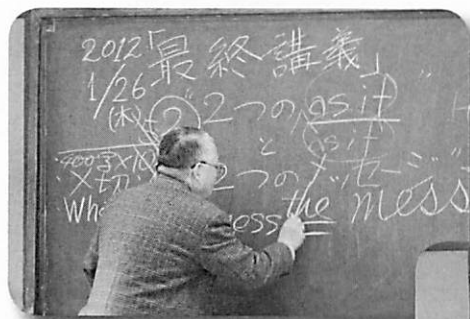 2012「最終講義」
1/26
(木) ② 2つの as if "
と as if
400字×10
〆切 2つのメッセージ"
Wh mess the mess